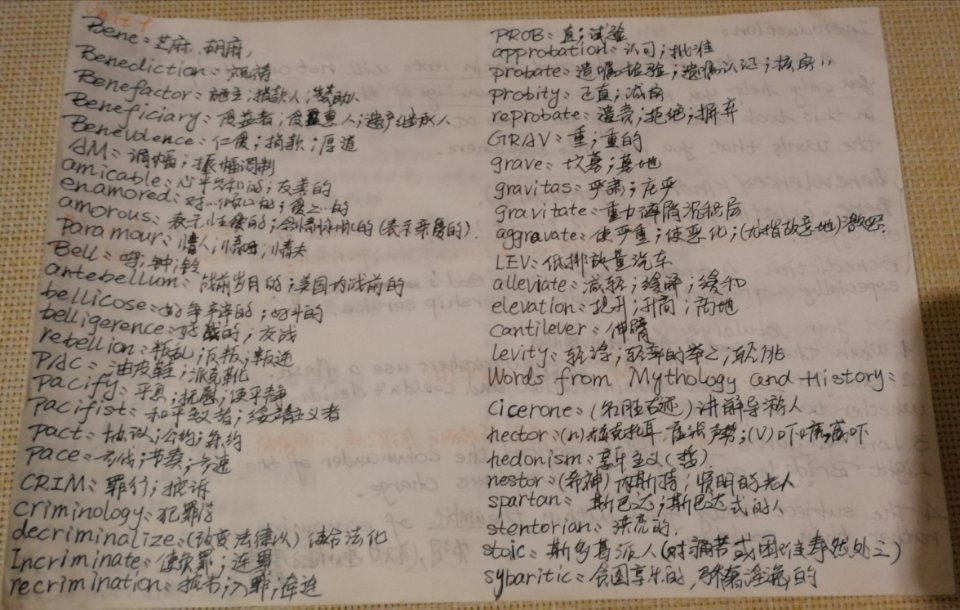 Unit 1
Bene: 芝麻、胡麻,
Benediction: 祝祷
Benefactor: 施主;捐款人;赞助人
Beneficiary: 受益者;受惠人;遗产继承人
Benevolence: 仁慈;捐款;厚道
AM: 调幅;振幅调制
amicable: 心平气和的;友善的
enamored: 的;爱上的
amorous: 表示性爱的;的(表示亲爱的).
Paramour: 情人;情妇;情夫
Bell: 钟;铃
antebellum: 战前岁月的;美国内战前的
bellicose: 好争辩的;好斗的
belligerence: 好战的;交战
rebellion: 叛乱;反抗;叛逆
PAC: 油皮鞋;派克靴
Pacify: 平息;抚慰;使平静
Pacifist: 和平主义者;绥靖主义者
Pact: 协议;公约;条约
Pace: 步伐;节奏;步速
CRIM: 罪行;控诉
Criminology: 犯罪学
decriminalize: (改变法律以)使合法化
Incriminate: 使负罪;连累
recrimination: 入罪;牵连
PROB: 直;试验
approbation: 认可;批准
probate: 遗嘱检验;遗嘱认证;
probity: 正直;
reprobate: 谴责;拒绝;摒弃
GRAV: 重;重的
grave: 坟墓;墓地
gravitas: 严肃;庄严
gravitate: 重力沉积层
aggravate: 使严重;使恶化;(尤指故意地)激怒
LEV: 低排放量汽车
alleviate: 减轻;缓解;缓和
elevation: 提升;升高;高地
cantilever: 伸臂
Levity: 轻浮;轻率的举止;轻佻
Words from Mythology and History:
cicerone: (名胜古迹)讲解导游人
hector: (n)赫克托耳,虚张声势;(V)吓唬,威吓
hedonism: 享乐主义(哲)
nestor: (希神)内斯特;贤明的老人
spartan: 斯巴达;斯巴达式的人
stentorian: 洪亮的,
stoic: 斯多葛派人(对痛苦或困难泰然处之)
sybaritic: 贪图享乐的,骄奢淫逸的